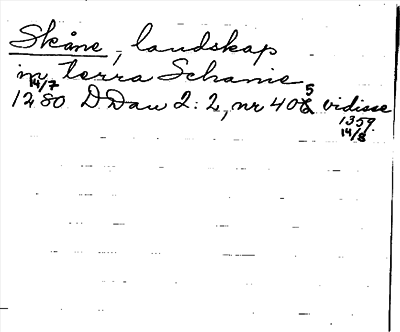 Skåne, landskap
in terra Schanie
14/7
1280 DDan 2:2, nr 405 vidisse
1359
14/8